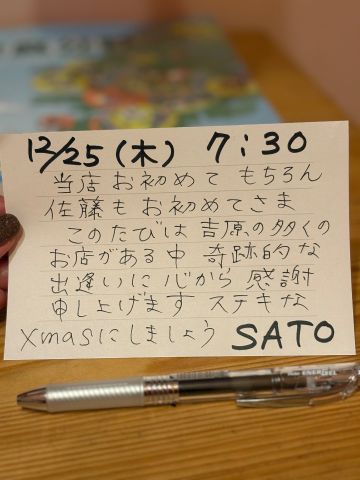 12/25(木) 7:30
当店 お初めて もちろん
佐藤も お初めてさま
このたびは吉原の多くの
お店がある中 奇跡的な
出逢いに心から 感謝
申し上げます ステキな
Xmasにしましょう SATO